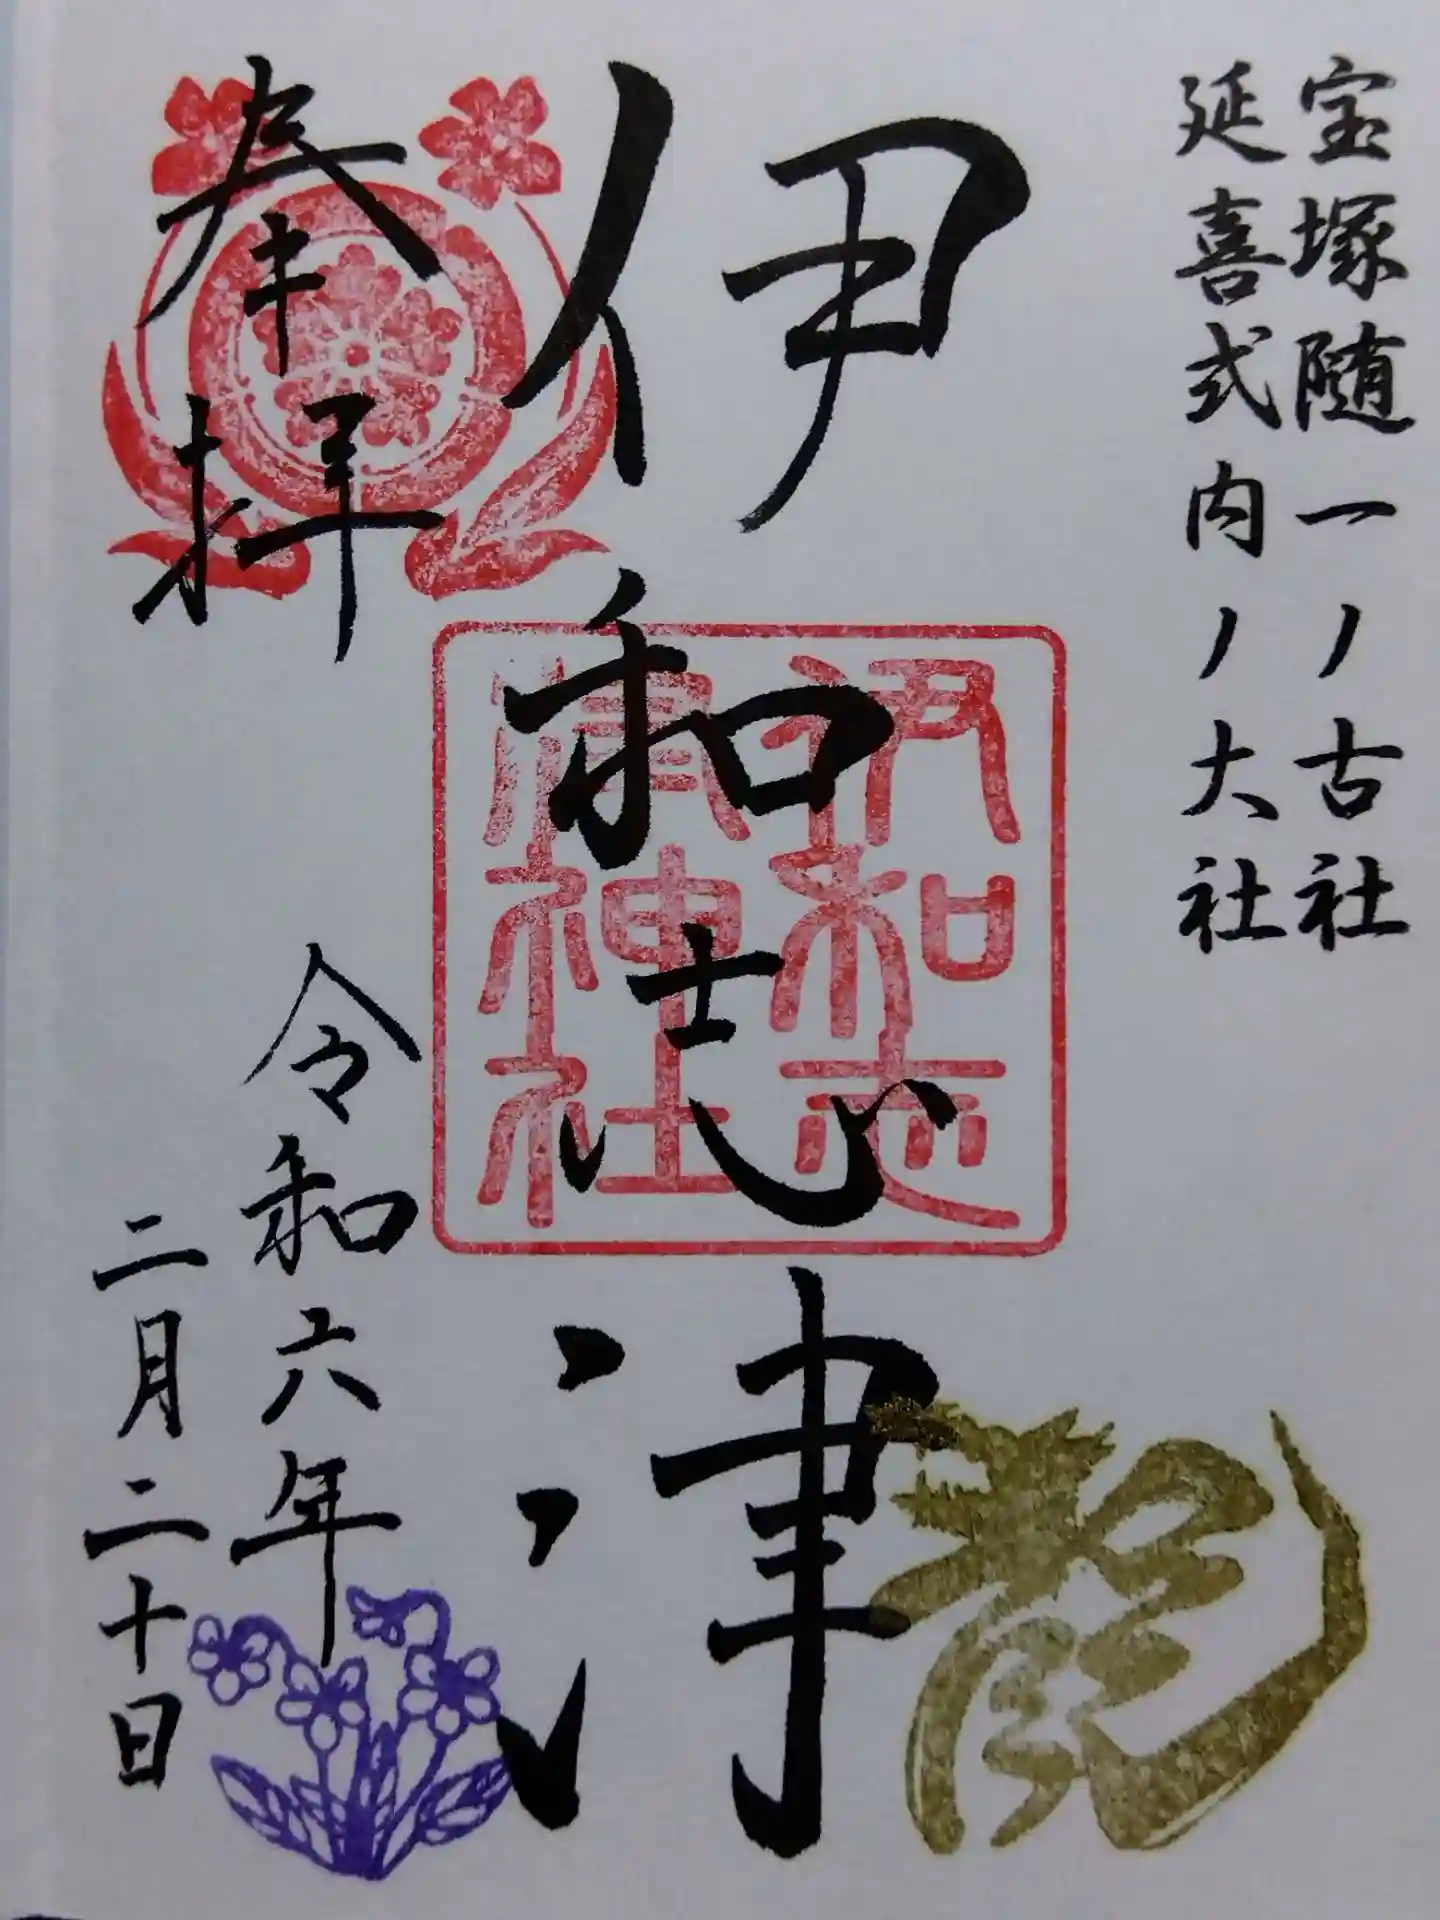 宝塚随一ノ古社
延喜式内ノ大社
伊和志津
伊和志
津神社
龍
奉拝
令和六年
二月二十日